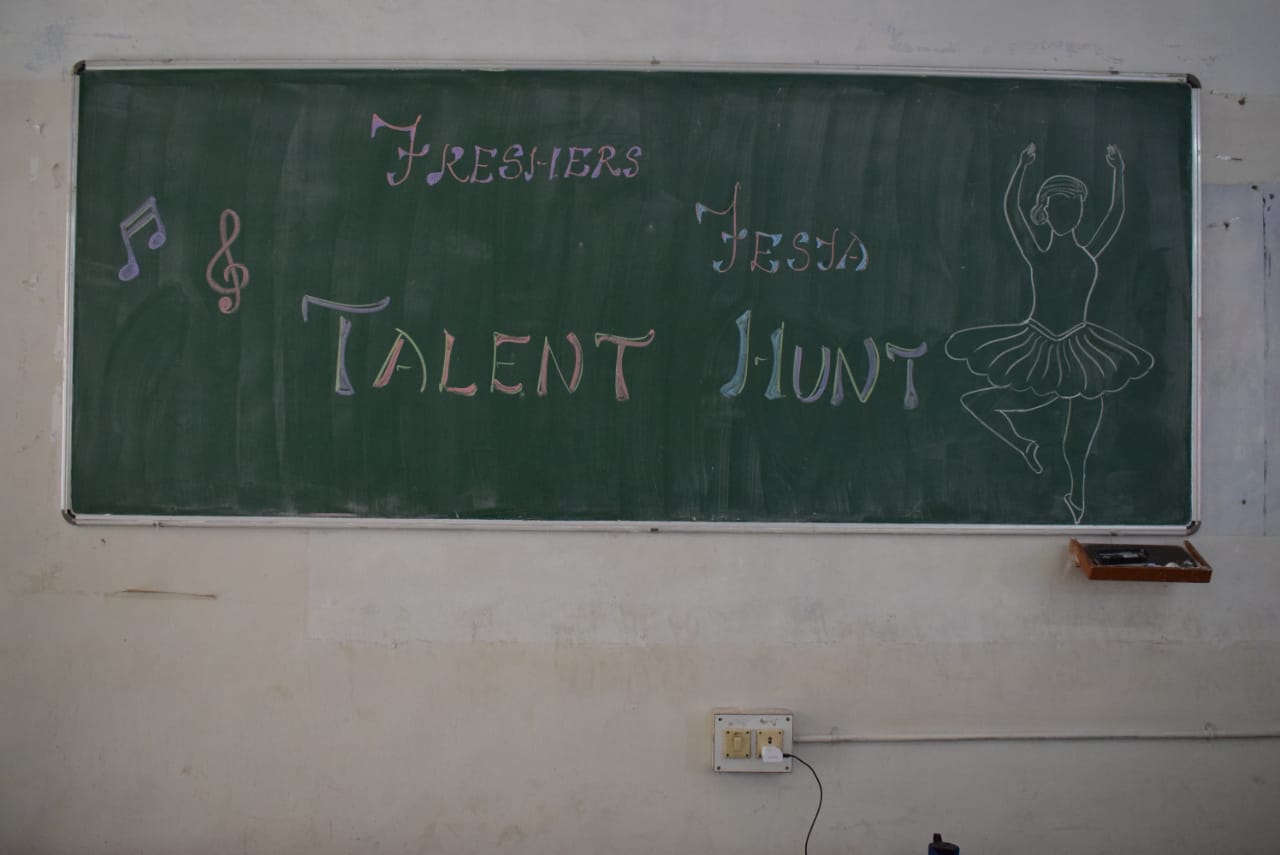 FRESHERS
FESTA
TALENT HUNT